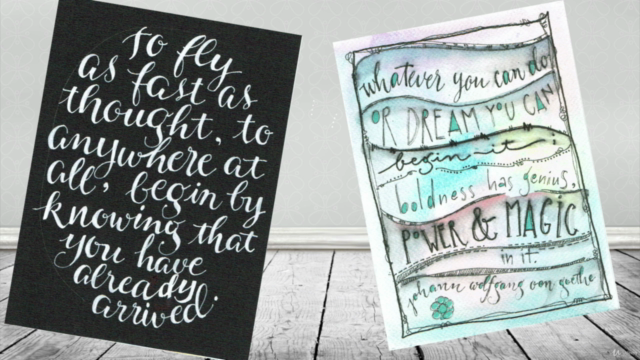 to fly
as fast as
thought, to
anywhere at
all, begin by
knowing that
you have
already
arrived.
whatever you can do
OR DREAM YOU CAN
begin it;
boldness has genius,
POWER & MAGIC
in it.
johann wolfgang von goethe